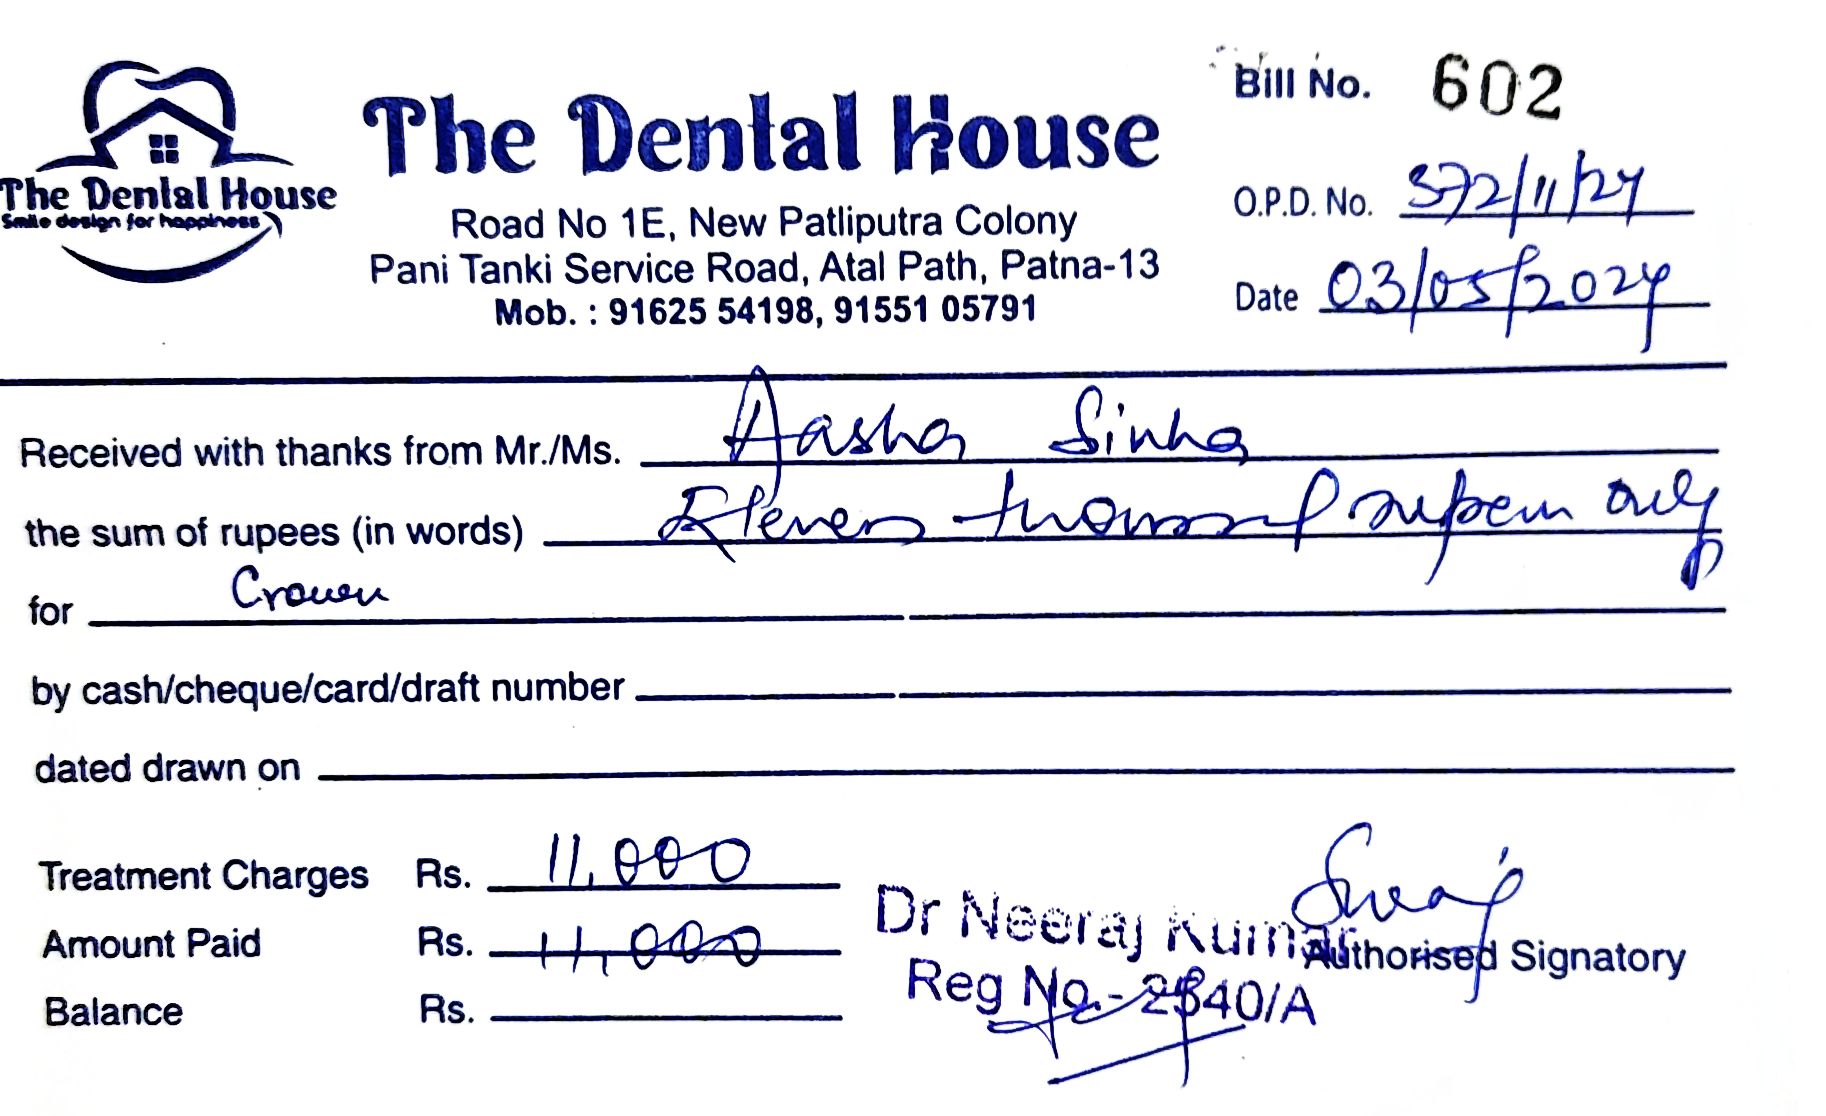 The Dental House
Smile design for happiness
The Dental House
Road No 1E, New Patliputra Colony
Pani Tanki Service Road, Atal Path, Patna-13
Mob. : 91625 54198, 91551 05791
Bill No. 602
O.P.D. No. 372/11/24
Date 03/05/2024
Received with thanks from Mr./Ms. Aasha Sinha
the sum of rupees (in words) Eleven thousand rupees only
for Crown
by cash/cheque/card/draft number
dated drawn on
Treatment Charges Rs. 11,000
Amount Paid Rs. 11,000
Balance Rs.
Dr Neeraj Kumar
Reg No.- /A
Authorised Signatory